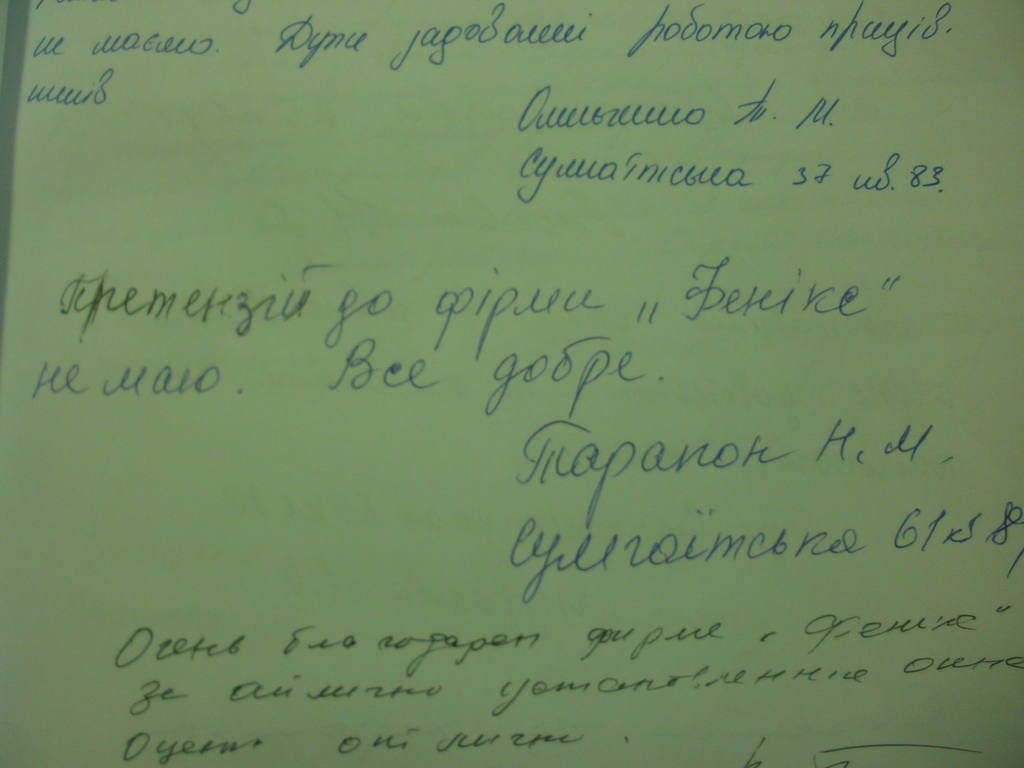 не маємо. Дуже задоволені роботою праців.
ників
Т. М.
Сумгаїтська 37 кв. 83.
Претензій до фірми „Фенікс“
не маю. Все добре.
Тарапон Н. М.
Сумгаїтська 61 кв
Очень благодарен фирме „Феникс“
за отлично установленные окна
Оценка отлично.